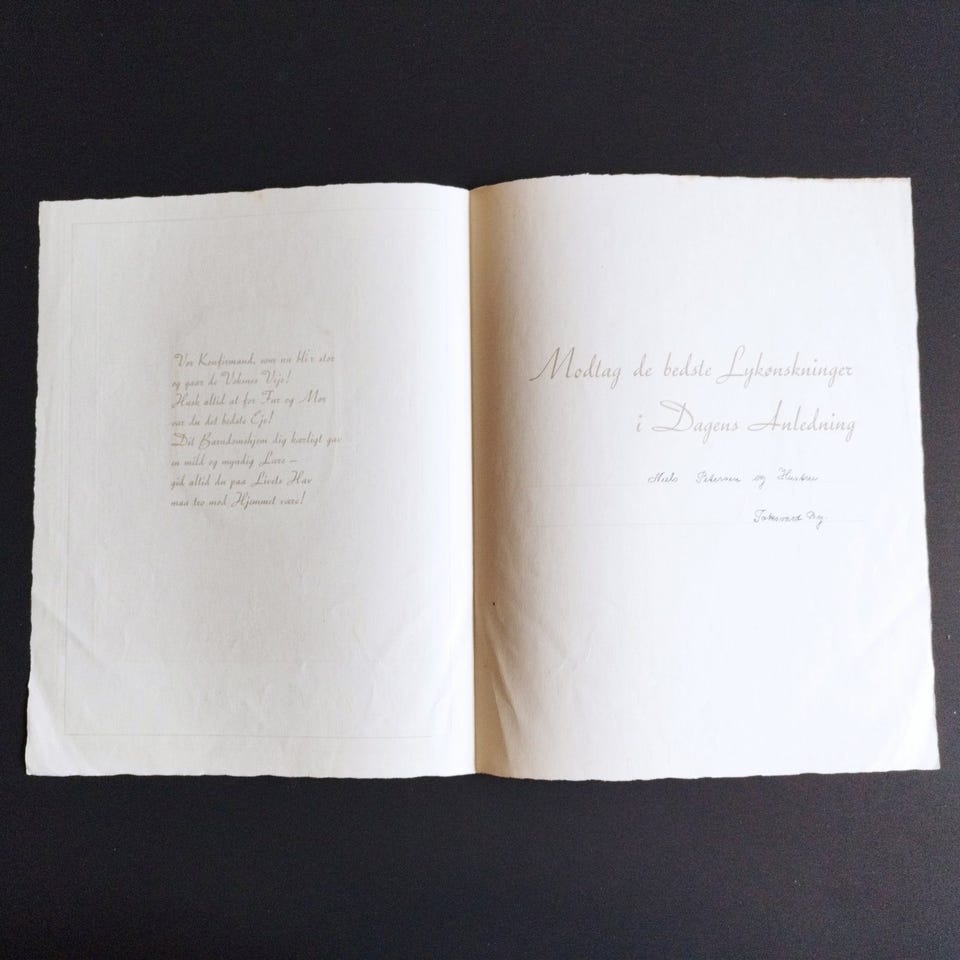 Vor Konfirmand, som nu bli'r stor
og gaar de Voksnes Veje!
Husk altid at for Far og Mor
var du det bedste Eje!
Dit Barndomshjem dig kærligt gav
en mild og myndig Lære —
gid altid du paa Livets Hav
maa tro mod Hjemmet være!
Modtag de bedste Lykønskninger
i Dagens Anledning
Niels Petersen og Hustru
By